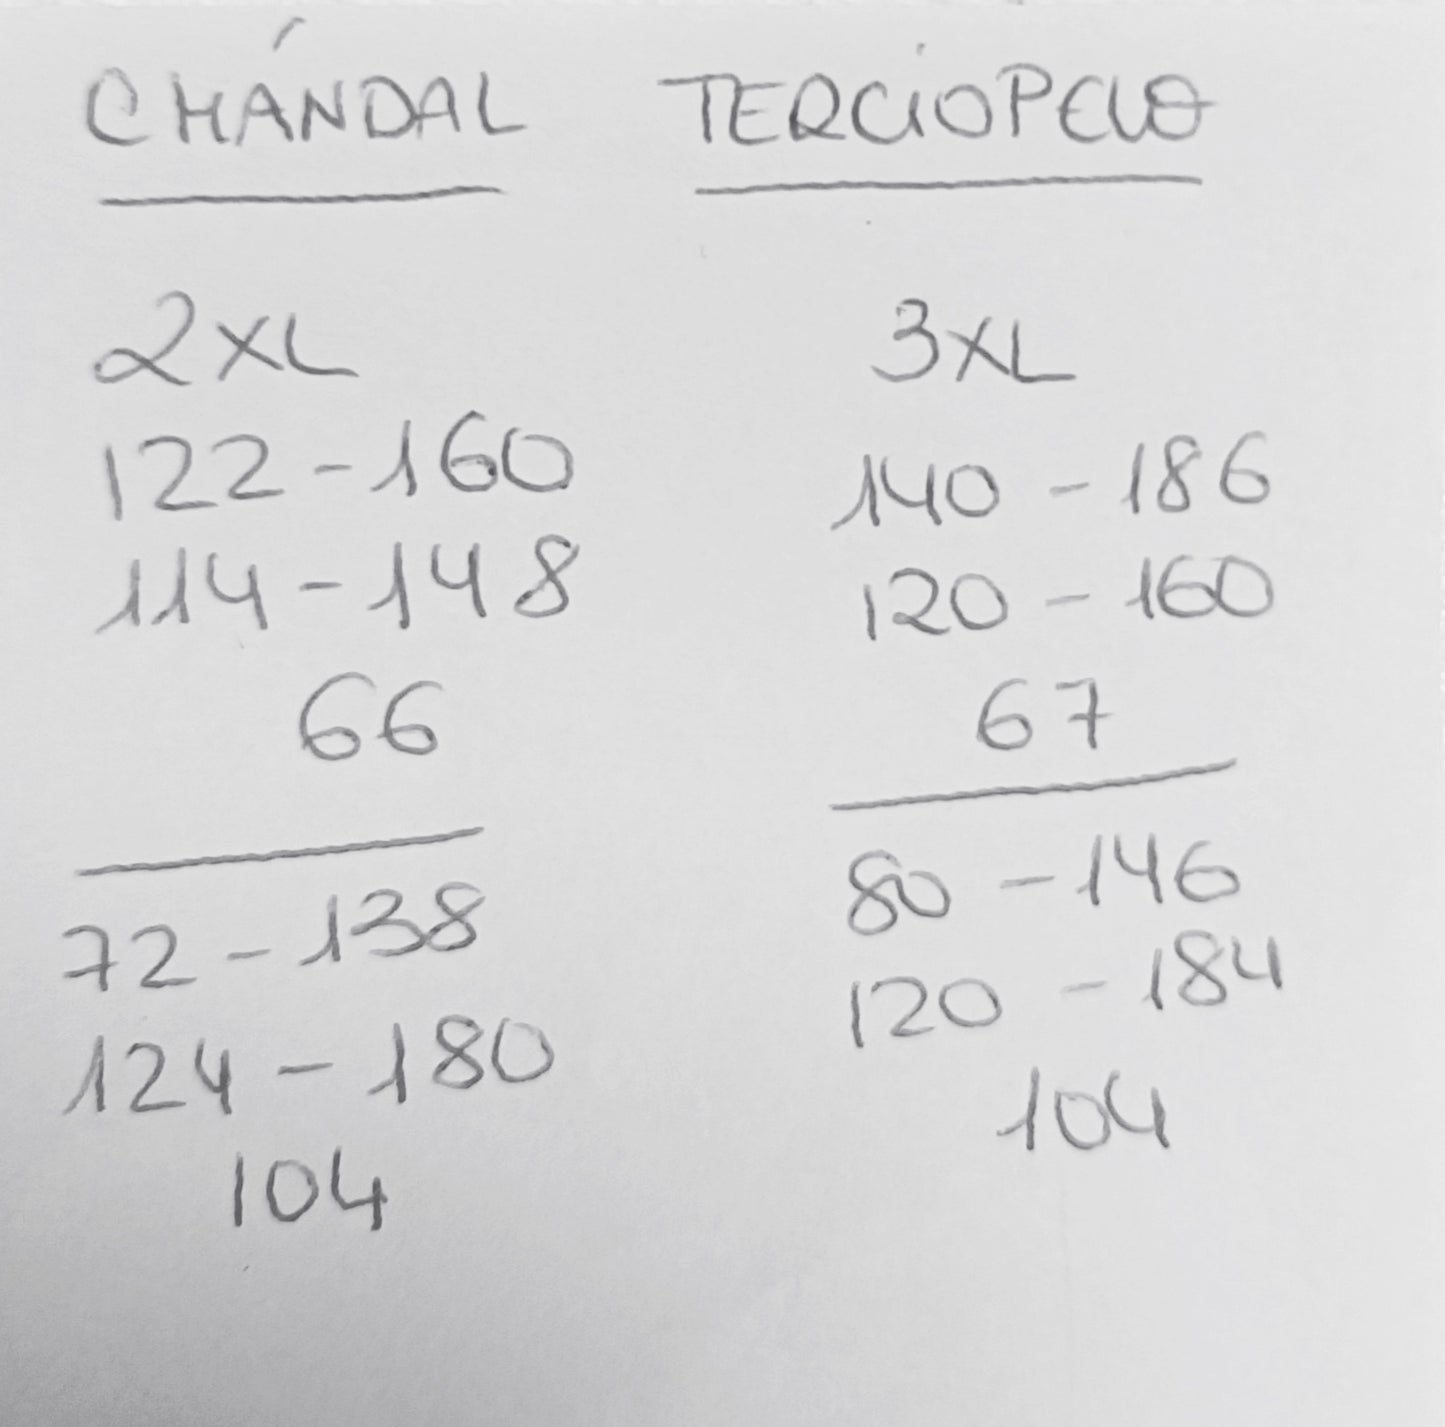 CHÁNDAL TERCIOPELO
2XL 3XL
122-160 140-186
114-148 120-160
66 67
72-138 80-146
124-180 120-184
104 104